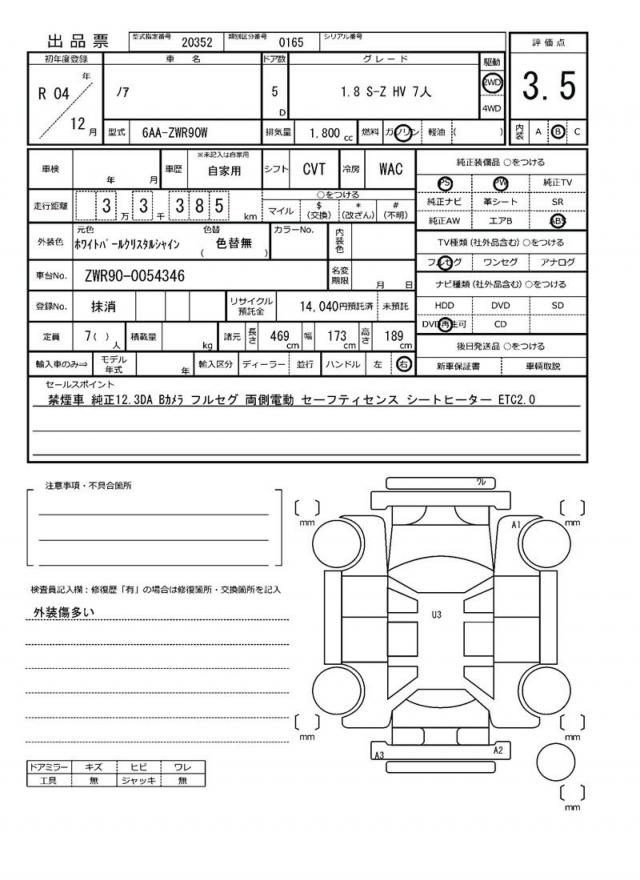 出品票 型式指定番号 20352 類別区分番号 0165 シリアル番号
評価点
3.5
初年度登録 車名 ドア数 グレード 駆動
R 04 年 ノア 5 D 1.8 S-Z HV 7人 2WD
4WD
12 月 型式 6AA-ZWR90W 排気量 1,800 cc 燃料 ガソリン 軽油 ( ) 内装 A B C
車検 年 月 車歴 ※未記入は自家用 自家用 シフト CVT 冷房 WAC
純正装備品 ○をつける
PS PW 純正TV
走行距離 3 万 3 千 3 8 5 km ○をつける
マイル $ (交換) * (改ざん) # (不明)
純正ナビ 革シート SR
純正AW エアB ABS
外装色 元色 ホワイトパールクリスタルシャイン 色替 ( 色替無 ) カラーNo. 内装色
TV種類 (社外品含む) ○をつける
フルセグ ワンセグ アナログ
車台No. ZWR90-0054346 名変期限 月 日
ナビ種類 (社外品含む) ○をつける
登録No. 抹消 リサイクル預託金 14,040円預託済 未預託
HDD DVD SD
DVD再生可 CD
定員 7( ) 人 積載量 kg 諸元 長さ 469 cm 幅 173 cm 高さ 189 cm
後日発送品 ○をつける
輸入車のみ⇒ モデル年式 年 輸入区分 ディーラー 並行 ハンドル 左 右
新車保証書 車輌取説
セールスポイント
禁煙車 純正12.3DA Bカメラ フルセグ 両側電動 セーフティセンス シートヒーター ETC2.0
注意事項・不具合箇所
ワレ
[ ] mm
[ ] mm
A1
検査員記入欄:修復歴「有」の場合は修復箇所・交換箇所を記入
外装傷多い
U3
[ ] mm
[ ] mm
A3
A2
[ ] mm
ドアミラー キズ ヒビ ワレ
工具 無 ジャッキ 無